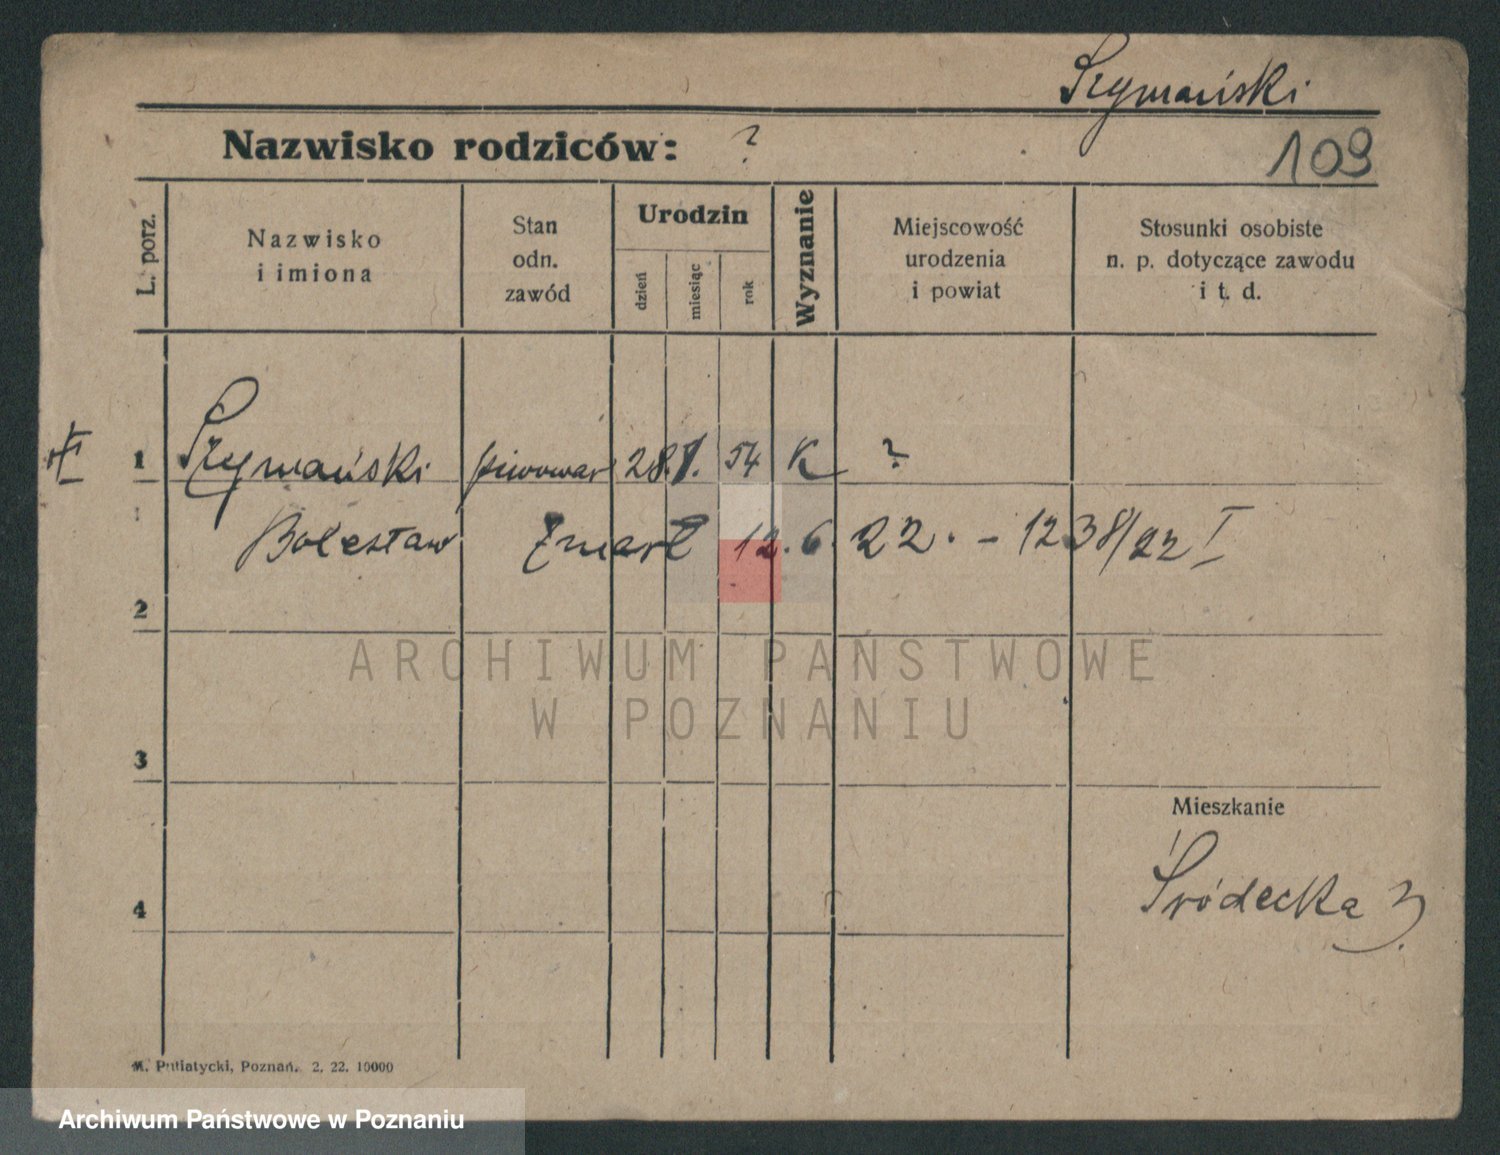 Szymański
109
Nazwisko rodziców: ?
L. porz.
Nazwisko
i imiona
Stan
odn.
zawód
Urodzin
dzień
miesiąc
rok
Wyznanie
Miejscowość
urodzenia
i powiat
Stosunki osobiste
n. p. dotyczące zawodu
i t. d.
1 Szymański piwowar 28. 8. 54 K ?
Bolesław Zmarł 12. 6. 22. - 1238/22 I
2
ARCHIWUM PAŃSTWOWE
W POZNANIU
3
Mieszkanie
Śródecka 3.
4
M. Putiatycki, Poznań. 2. 22. 10000
Archiwum Państwowe w Poznaniu